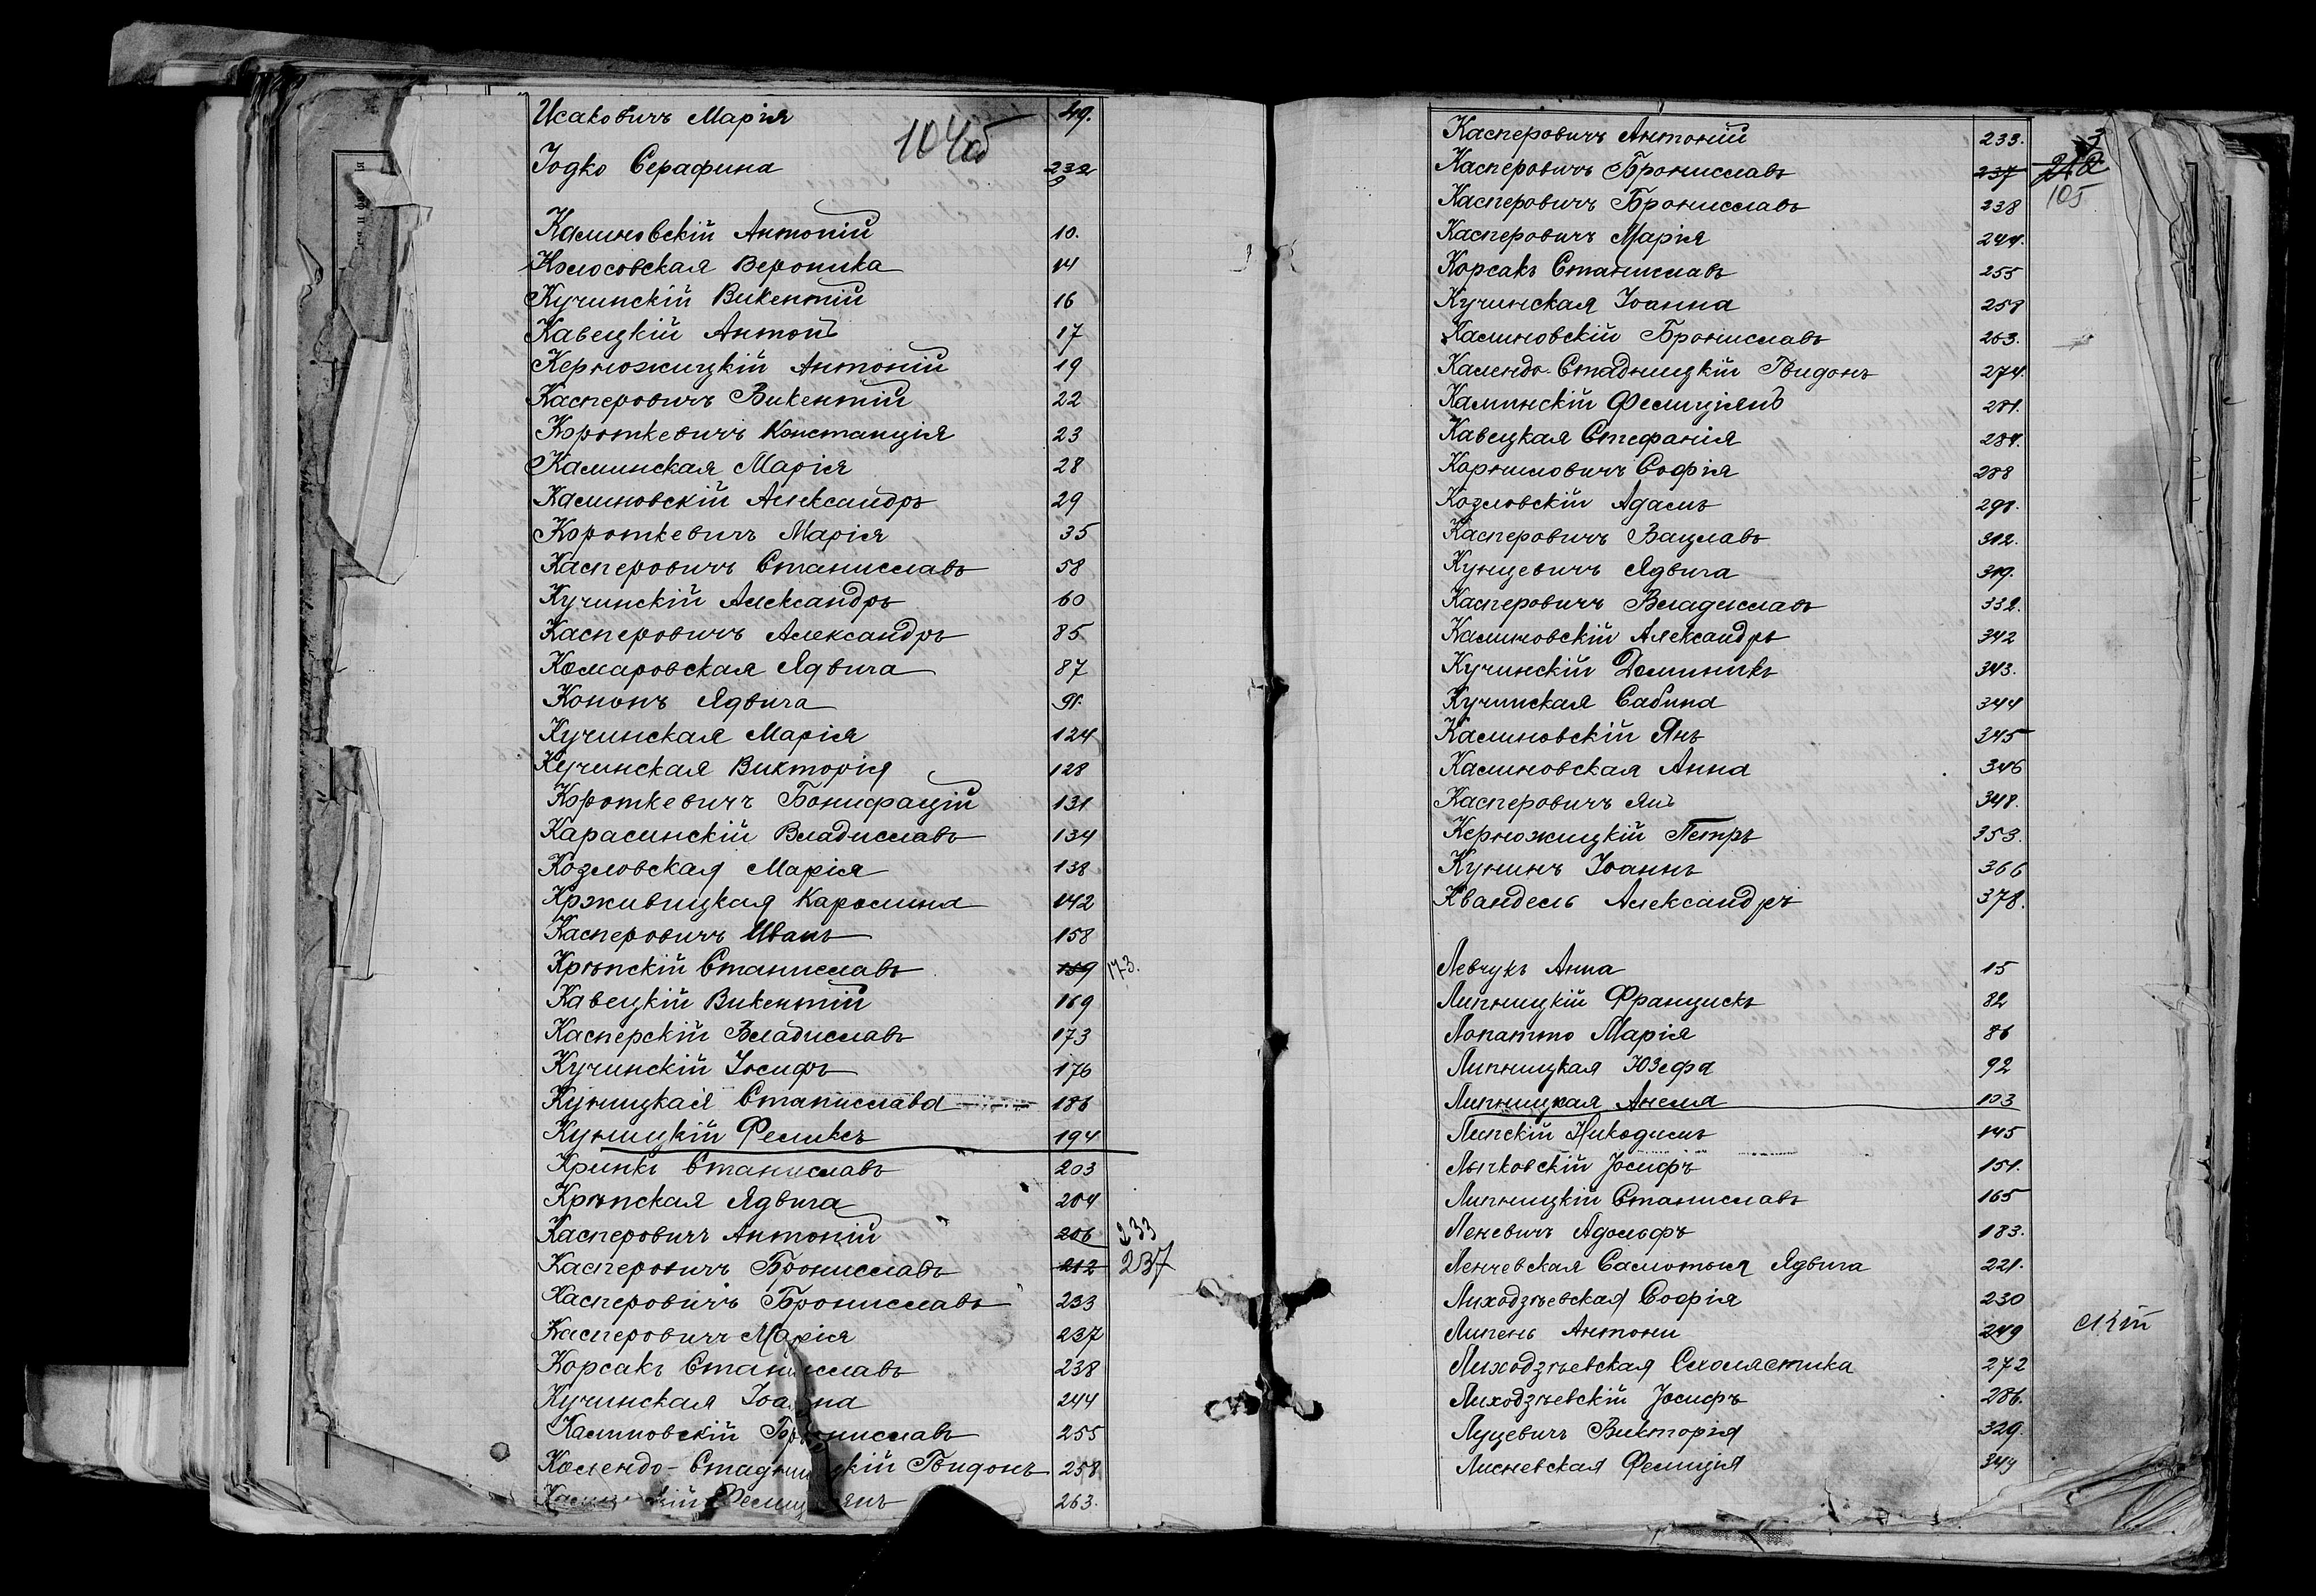 Исаковичъ Марія 49.
104об
Іодко Серафина 232
Калиновскій Антоній 10.
Колосовская Вероника 14
Кучинскій Викентій 16
Кавецкій Антонъ 17
Керножицкій Антоній 19
Касперовичъ Викентій 22
Короткевичъ Констанція 23
Калинская Марія 28
Калиновскій Александръ 29
Короткевичъ Марія 35
Касперовичъ Станиславъ 58
Кучинскій Александръ 60
Касперовичъ Александръ 85
Комаровская Ядвига 87
Кононъ Ядвига 91.
Кучинская Марія 124
Кучинская Викторія 128
Короткевичъ Бонифацій 131
Карасинскій Владиславъ 134
Козловская Марія 138
Крживицкая Каролина 142
Касперовичъ Иванъ 158
Крѣпскій Станиславъ 159 173.
Кавецкій Викентій 169
Касперскій Владиславъ 173
Кучинскій Іосифъ 176
Куницкая Станислава 186
Куницкій Феликсъ 194
Кринкъ Станиславъ 203
Крѣпская Ядвига 204
Касперовичъ Антоній 206 233
Касперовичъ Брониславъ 212 237
Касперовичъ Брониславъ 233
Касперовичъ Марія 237
Корсакъ Станиславъ 238
Кучинская Іоанна 244
Калиновскій Брониславъ 255
Колендо-Стадницкій Гвидонъ 258
263.
Касперовичъ Антоній 233.
Касперовичъ Брониславъ 237
105
Касперовичъ Брониславъ 238
Касперовичъ Марія 244.
Корсакъ Станиславъ 255
Кучинская Іоанна 258
Калиновскій Брониславъ 263.
Календо-Стадницкій Гвидонъ 274.
Калинскій Фелиціянъ 281.
Кавецкая Стефанія 284.
Корниловичъ Софія 288
Козловскій Адамъ 291.
Касперовичъ Вацлавъ 312.
Кунцевичъ Ядвига 319.
Касперовичъ Владиславъ 332.
Калиновскій Александръ 342
Кучинскій Доминикъ 343.
Кучинская Сабина 344
Калиновскій Янъ 345
Калиновская Анна 346
Касперовичъ Янъ 348.
Керножицкій Петръ 353.
Кунинъ Іоаннъ 366
Квандель Александръ 378.
Левчукъ Анна 15
Липницкій Францискъ 82
Лопатто Марія 86
Липницкая Юзефа 92
Липницкая Анеля 103
Липскій Никодимъ 145
Лычковскій Іосифъ 151.
Липницкій Станиславъ 165
Леневичъ Адольфъ 183.
Ленчевская Саломыя Ядвига 221.
Лиходзѣевская Софія 230
Липень Антони 249
Лиходзѣевская Схолястика 272
Лиходзѣевскій Іосифъ 286.
Луцевичъ Викторія 329.
Лисневская Фелиція 349